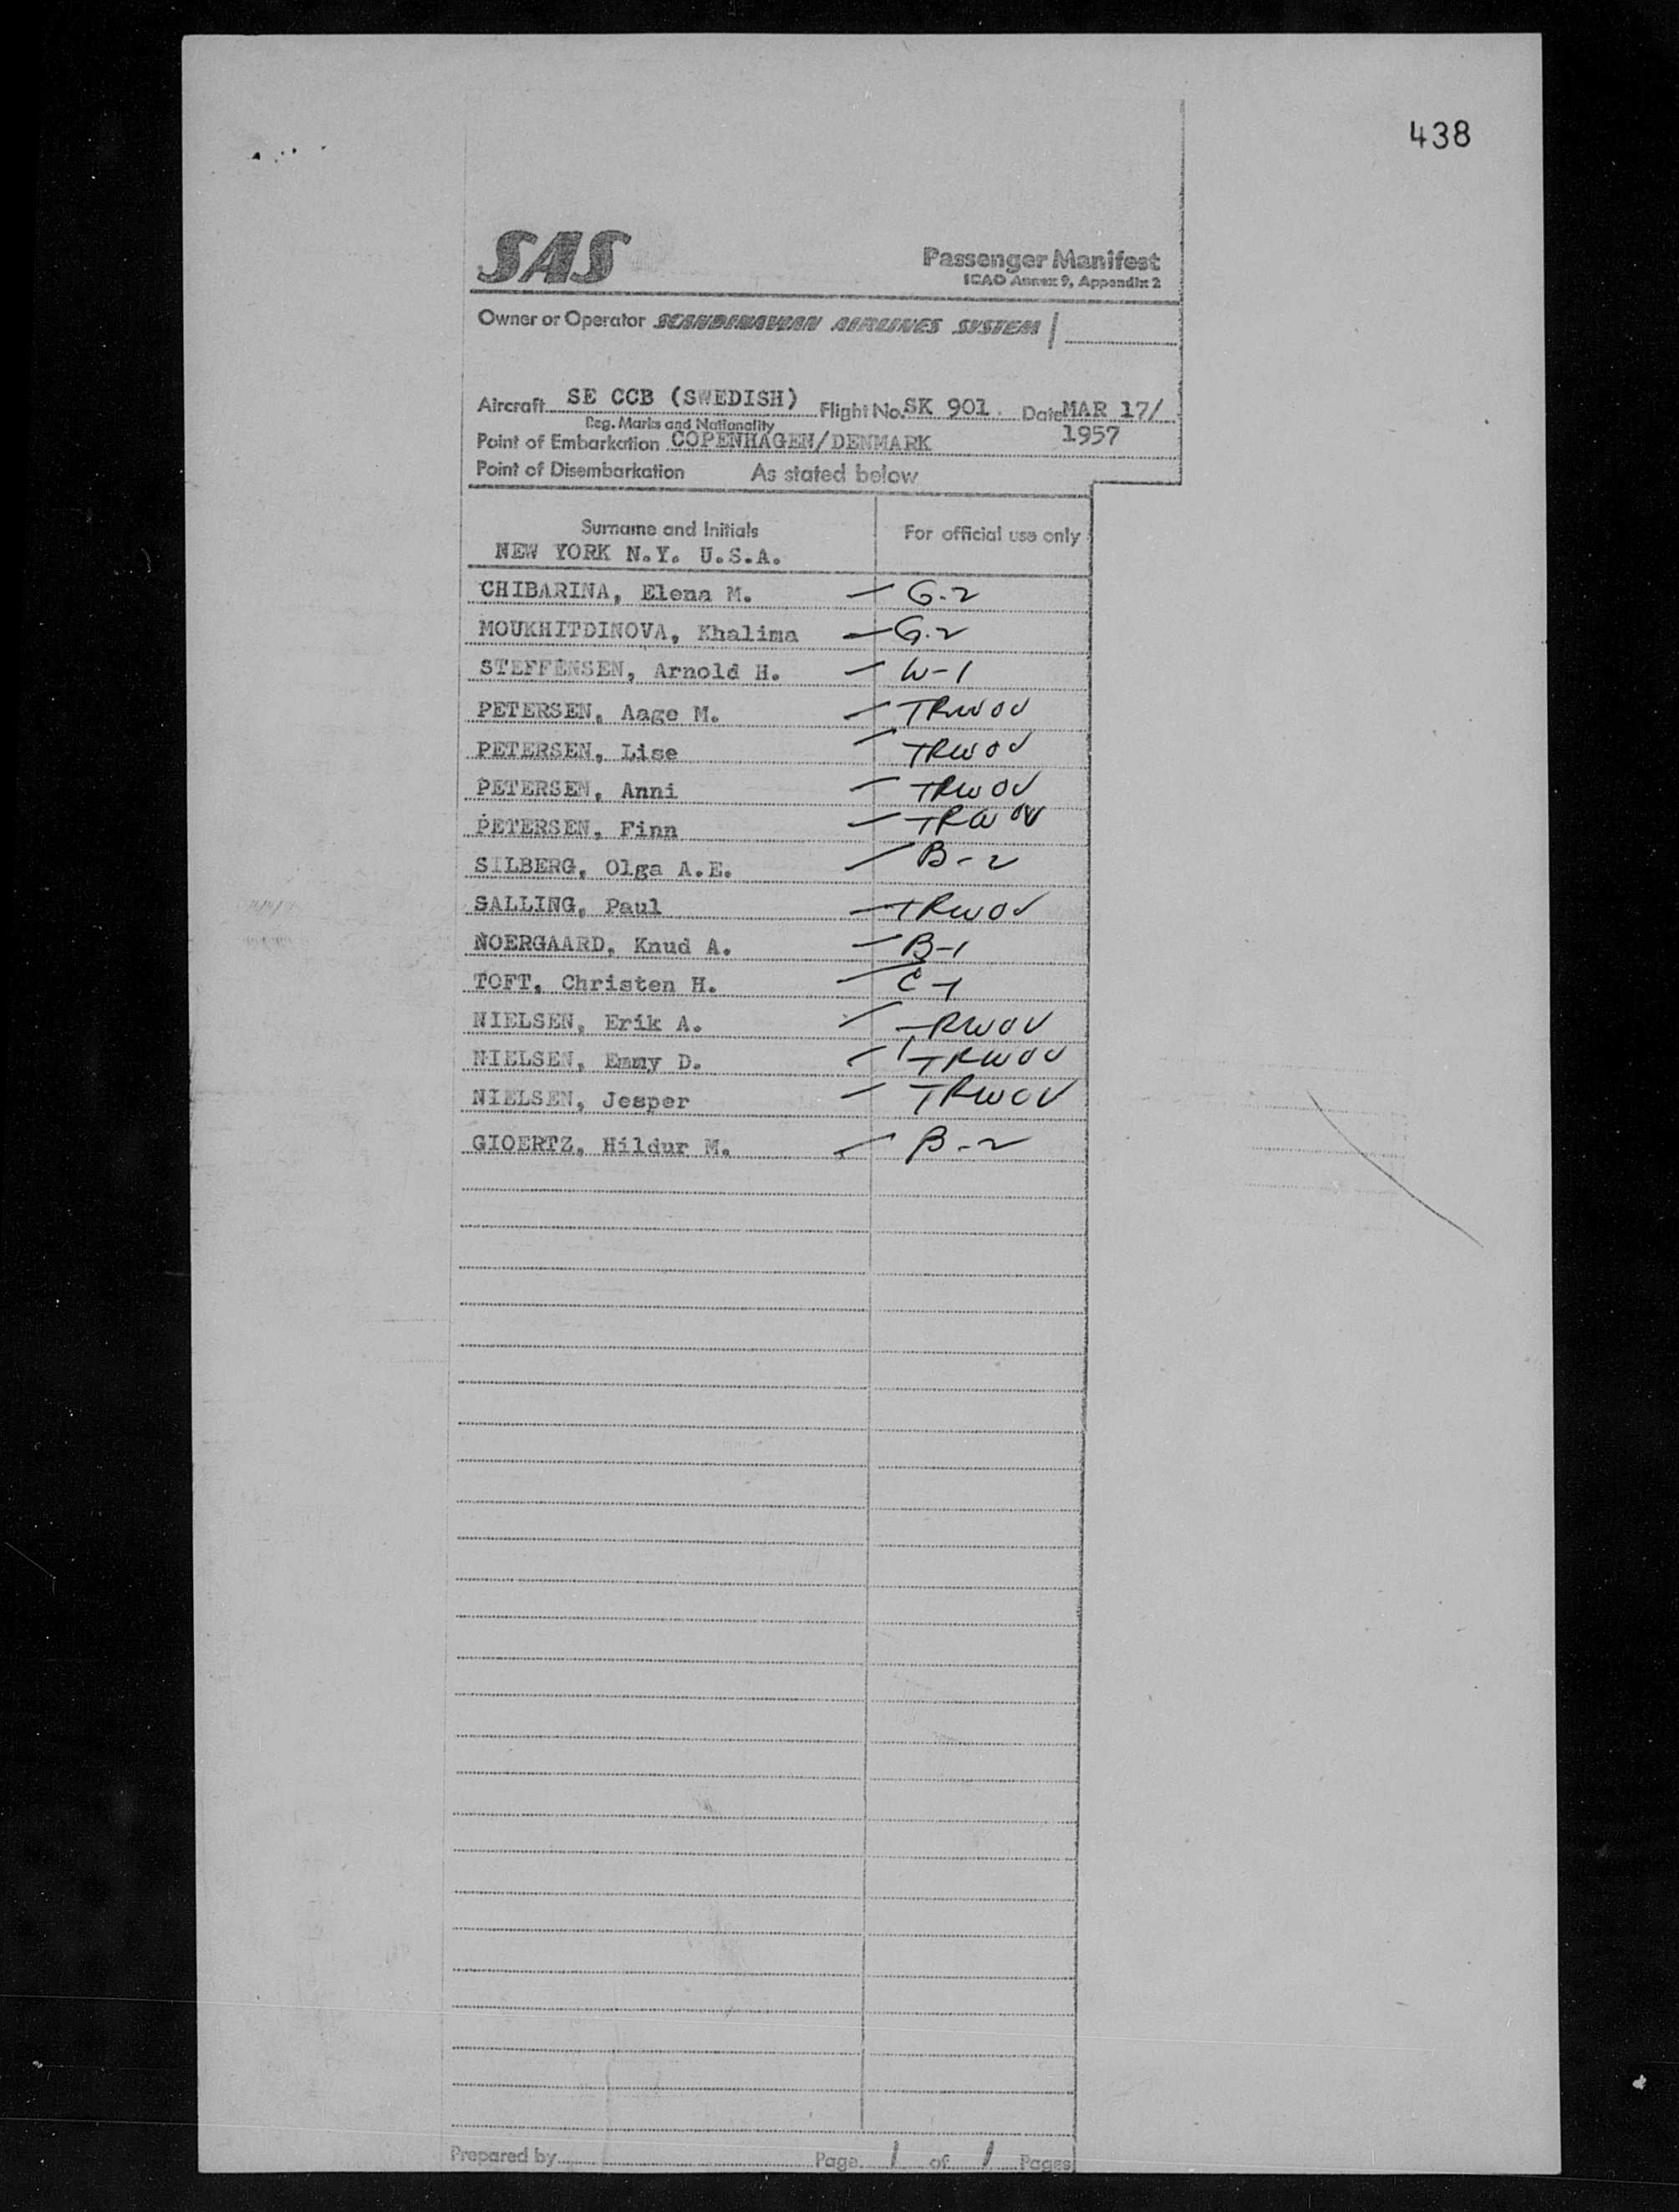 438
SAS
Passenger Manifest
ICAO Annex 9, Appendix 2
Owner or Operator SCANDINAVIAN AIRLINES SYSTEM
Aircraft SE CCB (SWEDISH) Flight No. SK 901. Date MAR 17/
Reg. Marks and Nationality
1957
Point of Embarkation COPENHAGEN/DENMARK
Point of Disembarkation As stated below
Surname and Initials For official use only
NEW YORK N.Y. U.S.A.
CHIBARINA, Elena M. — G-2
MOUKHITDINOVA, Khalima — G-2
STEFFENSEN, Arnold H. — W-1
PETERSEN, Aage M. — TRWOV
PETERSEN, Lise — TRWOV
PETERSEN, Anni — TRWOV
PETERSEN, Finn — TRWOV
SILBERG, Olga A.E. — B-2
SALLING, Paul — TRWOV
NOERGAARD, Knud A. — B-1
TOFT, Christen H. — C-1
NIELSEN, Erik A. — TRWOV
NIELSEN, Emmy D. — TRWOV
NIELSEN, Jesper — TRWOV
GIOERTZ, Hildur M. — B-2
Prepared by Page 1 of 1 Pages